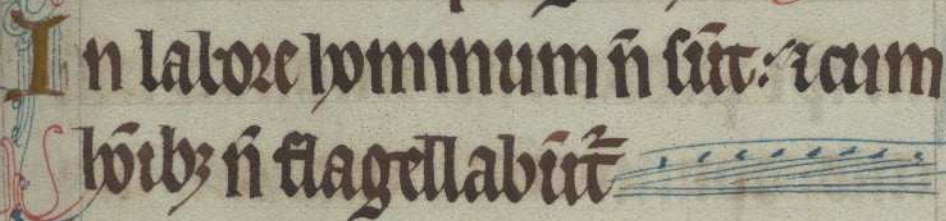 In labore hominum n̄ sūt: ⁊ cum
hōıbꝫ n̄ flagellabūt᷑